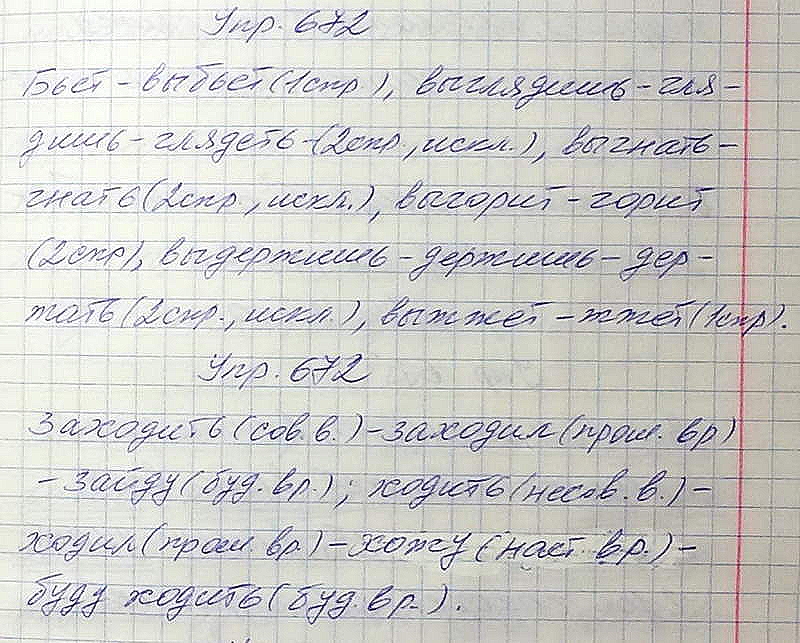 Упр. 672
Бьёт - выбьет (1спр), выглядишь - гля-
дишь - глядеть - (2спр., искл.), выгнать -
гнать (2спр., искл.), выгорит - горит
(2спр), выдержишь - держишь - дер-
жать (2спр., искл.), выжжет - жжёт (1спр).
Упр. 672
Заходить (сов. в.) - заходил (прош. вр)
- зайду (буд. вр.); ходить (несов. в.) -
ходил (прош. вр.) - хожу (наст. вр.) -
буду ходить (буд. вр.).